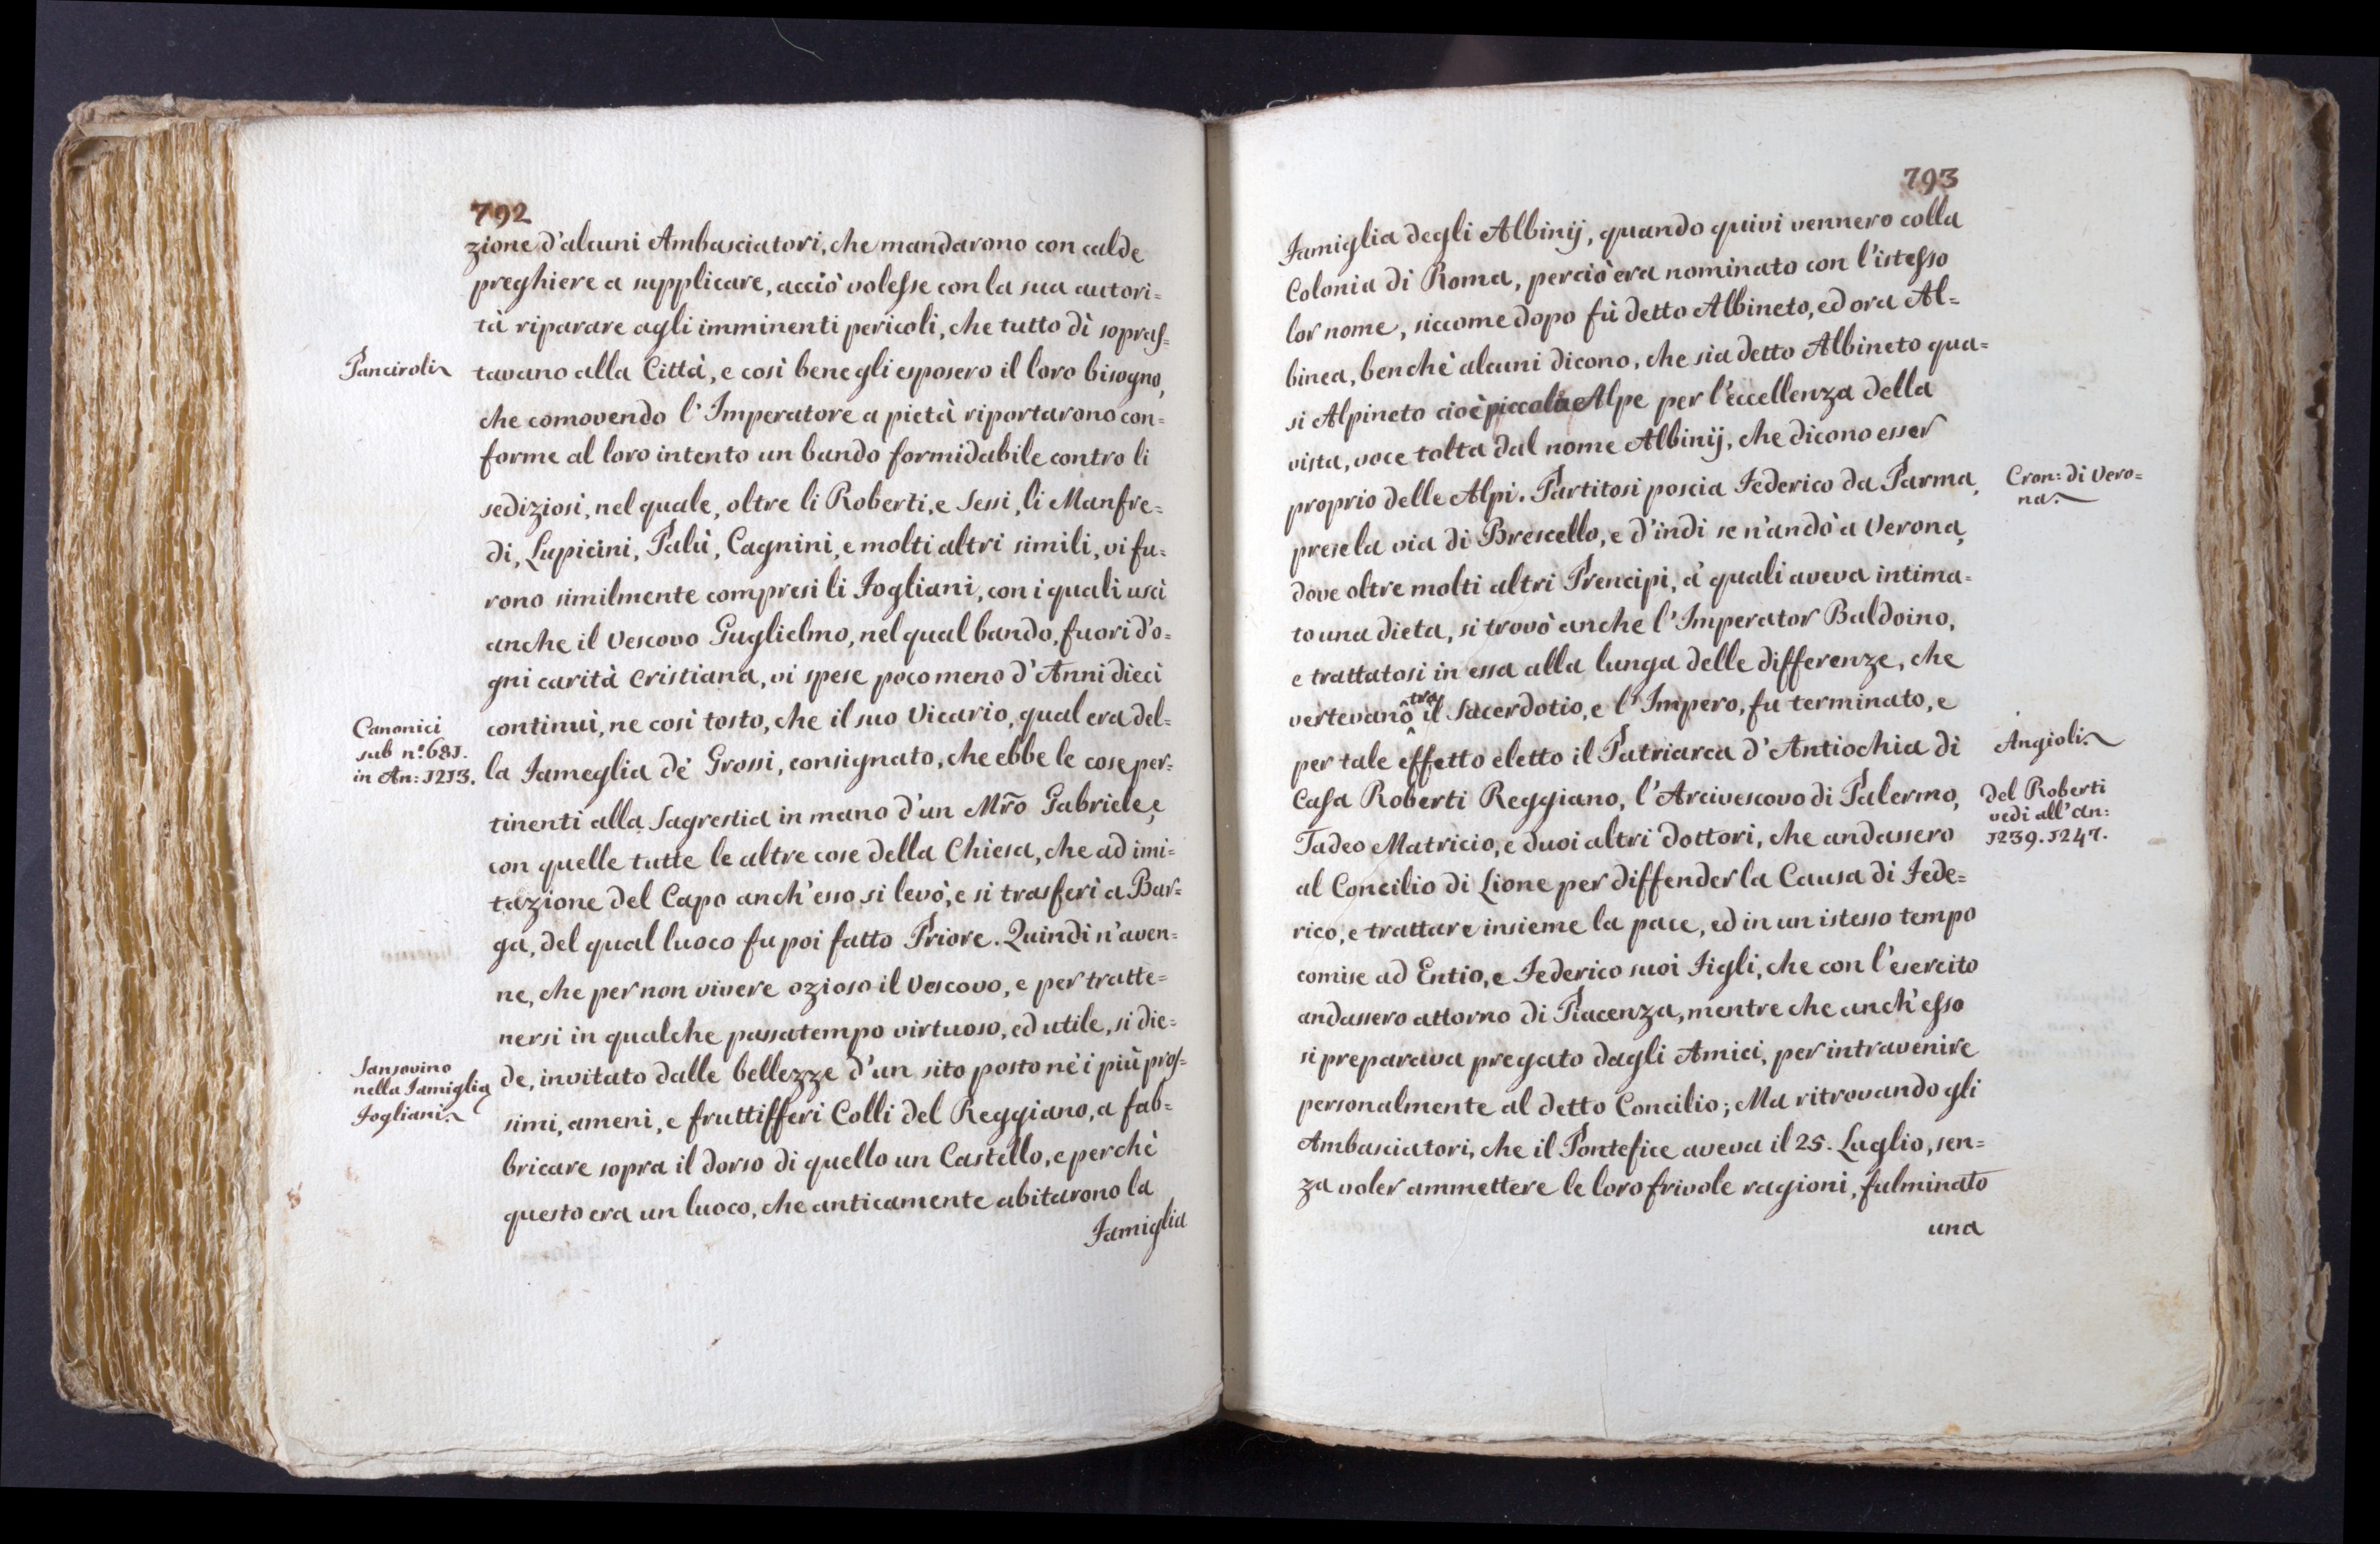 792
zione d'alcuni Ambasciatori, che mandarono con calde
preghiere a supplicare, acciò volesse con la sua autori=
tà riparare agli imminenti pericoli, che tutto dì sopras=
Panciroli
tavano alla Città, e così bene gli esposero il loro bisogno,
che comovendo l'Imperatore a pietà riportarono con=
forme al loro intento un bando formidabile contro li
sediziosi, nel quale, oltre li Roberti, e Sessi, li Manfre=
di, Lupicini, Palù, Cagnini, e molti altri simili, vi fu=
rono similmente compresi li Fogliani, con i quali uscì
anche il Vescovo Guglielmo, nel qual bando, fuori d'o=
gni carità Cristiana, vi spese poco meno d'Anni dieci
Canonici
sub n.º 681.
in An: 1213.
continui, ne così tosto, che il suo Vicario, qual era del=
la Fameglia de' Grossi, consignato, che ebbe le cose per=
tinenti alla Sagrestia in mano d'un Mr̃o Gabriele, e
con quelle tutte le altre cose della Chiesa, che ad imi=
tazione del Capo anch'esso si levò, e si trasferì a Bar=
ga, del qual luoco fu poi fatto Priore. Quindi n'aven=
ne, che per non vivere ozioso il Vescovo, e per tratte=
nersi in qualche passatempo virtuoso, ed utile, si die=
Sansovino
nella Famiglia
Fogliani.
de, invitato dalle bellezze d'un sito posto nè i più pros=
simi, ameni, e fruttifferi Colli del Reggiano, a fab=
bricare sopra il dorso di quello un Castello, e perchè
questo era un luoco, che anticamente abitarono la
Famiglia
793
Famiglia degli Albinij, quando quivi vennero colla
Colonia di Roma, perciò era nominato con l'istesso
lor nome, siccome dopo fù detto Albineto, ed ora Al=
binea, benchè alcuni dicono, che sia detto Albineto qua=
si Alpineto cioè piccola Alpe per l'eccellenza della
vista, voce tolta dal nome Albinij, che dicono esser
proprio delle Alpi. Partitosi poscia Federico da Parma,
Cron: di Vero=
na.
prese la via di Brescello, e d'indi se n'andò a Verona,
dove oltre molti altri Prencipi, a' quali aveva intima=
to una dieta, si trovò anche l'Imperator Baldoino,
e trattatosi in essa alla lunga delle differenze, che
vertevano tra il Sacerdotio, e l'Impero, fu terminato, e
per tale effetto eletto il Patriarca d'Antiochia di
Angioli.
Casa Roberti Reggiano, l'Arcivescovo di Palermo,
Del Roberti
vedi all'an:
1239. 1247.
Tadeo Matricio, e duoi altri Dottori, che andassero
al Concilio di Lione per diffender la Causa di Fede=
rico, e trattare insieme la pace, ed in un istesso tempo
comise ad Entio, e Federico suoi Figli, che con l'esercito
andassero attorno di Piacenza, mentre che anch'esso
si preparava pregato dagli Amici, per intravenire
personalmente al detto Concilio; Ma ritrovando gli
Ambasciatori, che il Pontefice aveva il 25. Luglio, sen=
za voler ammettere le loro frivole ragioni, fulminato
una